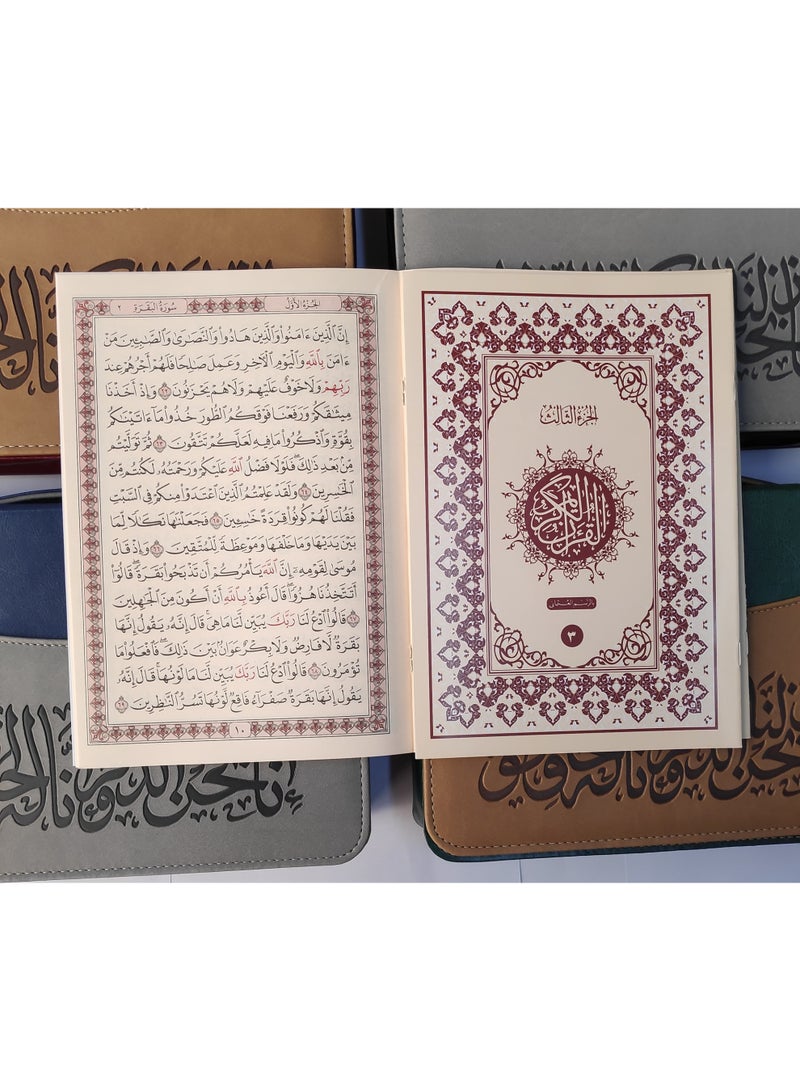 الجزء الثالث
القرآن الكريم
بالرسم العثماني
٣
الجزء الأول
سورة البقرة ٢
إِنَّ ٱلَّذِينَ ءَامَنُوا۟ وَٱلَّذِينَ هَادُوا۟ وَٱلنَّصَٰرَىٰ وَٱلصَّٰبِـِٔينَ مَنْ
ءَامَنَ بِٱللَّهِ وَٱلْيَوْمِ ٱلْءَاخِرِ وَعَمِلَ صَٰلِحًا فَلَهُمْ أَجْرُهُمْ عِندَ
رَبِّهِمْ وَلَا خَوْفٌ عَلَيْهِمْ وَلَا هُمْ يَحْزَنُونَ ٦٢ وَإِذْ أَخَذْنَا
مِيثَٰقَكُمْ وَرَفَعْنَا فَوْقَكُمُ ٱلطُّورَ خُذُوا۟ مَآ ءَاتَيْنَٰكُم
بِقُوَّةٍ وَٱذْكُرُوا۟ مَا فِيهِ لَعَلَّكُمْ تَتَّقُونَ ٦٣ ثُمَّ تَوَلَّيْتُم
مِّنۢ بَعْدِ ذَٰلِكَ فَلَوْلَا فَضْلُ ٱللَّهِ عَلَيْكُمْ وَرَحْمَتُهُۥ لَكُنتُم مِّنَ
ٱلْخَٰسِرِينَ ٦٤ وَلَقَدْ عَلِمْتُمُ ٱلَّذِينَ ٱعْتَدَوْا۟ مِنكُمْ فِى ٱلسَّبْتِ
فَقُلْنَا لَهُمْ كُونُوا۟ قِرَدَةً خَٰسِـِٔينَ ٦٥ فَجَعَلْنَٰهَا نَكَٰلًا لِّمَا
بَيْنَ يَدَيْهَا وَمَا خَلْفَهَا وَمَوْعِظَةً لِّلْمُتَّقِينَ ٦٦ وَإِذْ قَالَ
مُوسَىٰ لِقَوْمِهِۦٓ إِنَّ ٱللَّهَ يَأْمُرُكُمْ أَن تَذْبَحُوا۟ بَقَرَةً قَالُوٓا۟
أَتَتَّخِذُنَا هُزُوًا قَالَ أَعُوذُ بِٱللَّهِ أَنْ أَكُونَ مِنَ ٱلْجَٰهِلِينَ
٦٧ قَالُوا۟ ٱدْعُ لَنَا رَبَّكَ يُبَيِّن لَّنَا مَا هِىَ قَالَ إِنَّهُۥ يَقُولُ إِنَّهَا
بَقَرَةٌ لَّا فَارِضٌ وَلَا بِكْرٌ عَوَانٌۢ بَيْنَ ذَٰلِكَ فَٱفْعَلُوا۟ مَا
تُؤْمَرُونَ ٦٨ قَالُوا۟ ٱدْعُ لَنَا رَبَّكَ يُبَيِّن لَّنَا مَا لَوْنُهَا قَالَ إِنَّهُۥ
يَقُولُ إِنَّهَا بَقَرَةٌ صَفْرَآءُ فَاقِعٌ لَّوْنُهَا تَسُرُّ ٱلنَّٰظِرِينَ ٦٩
١٠
إنا نحن نزلنا